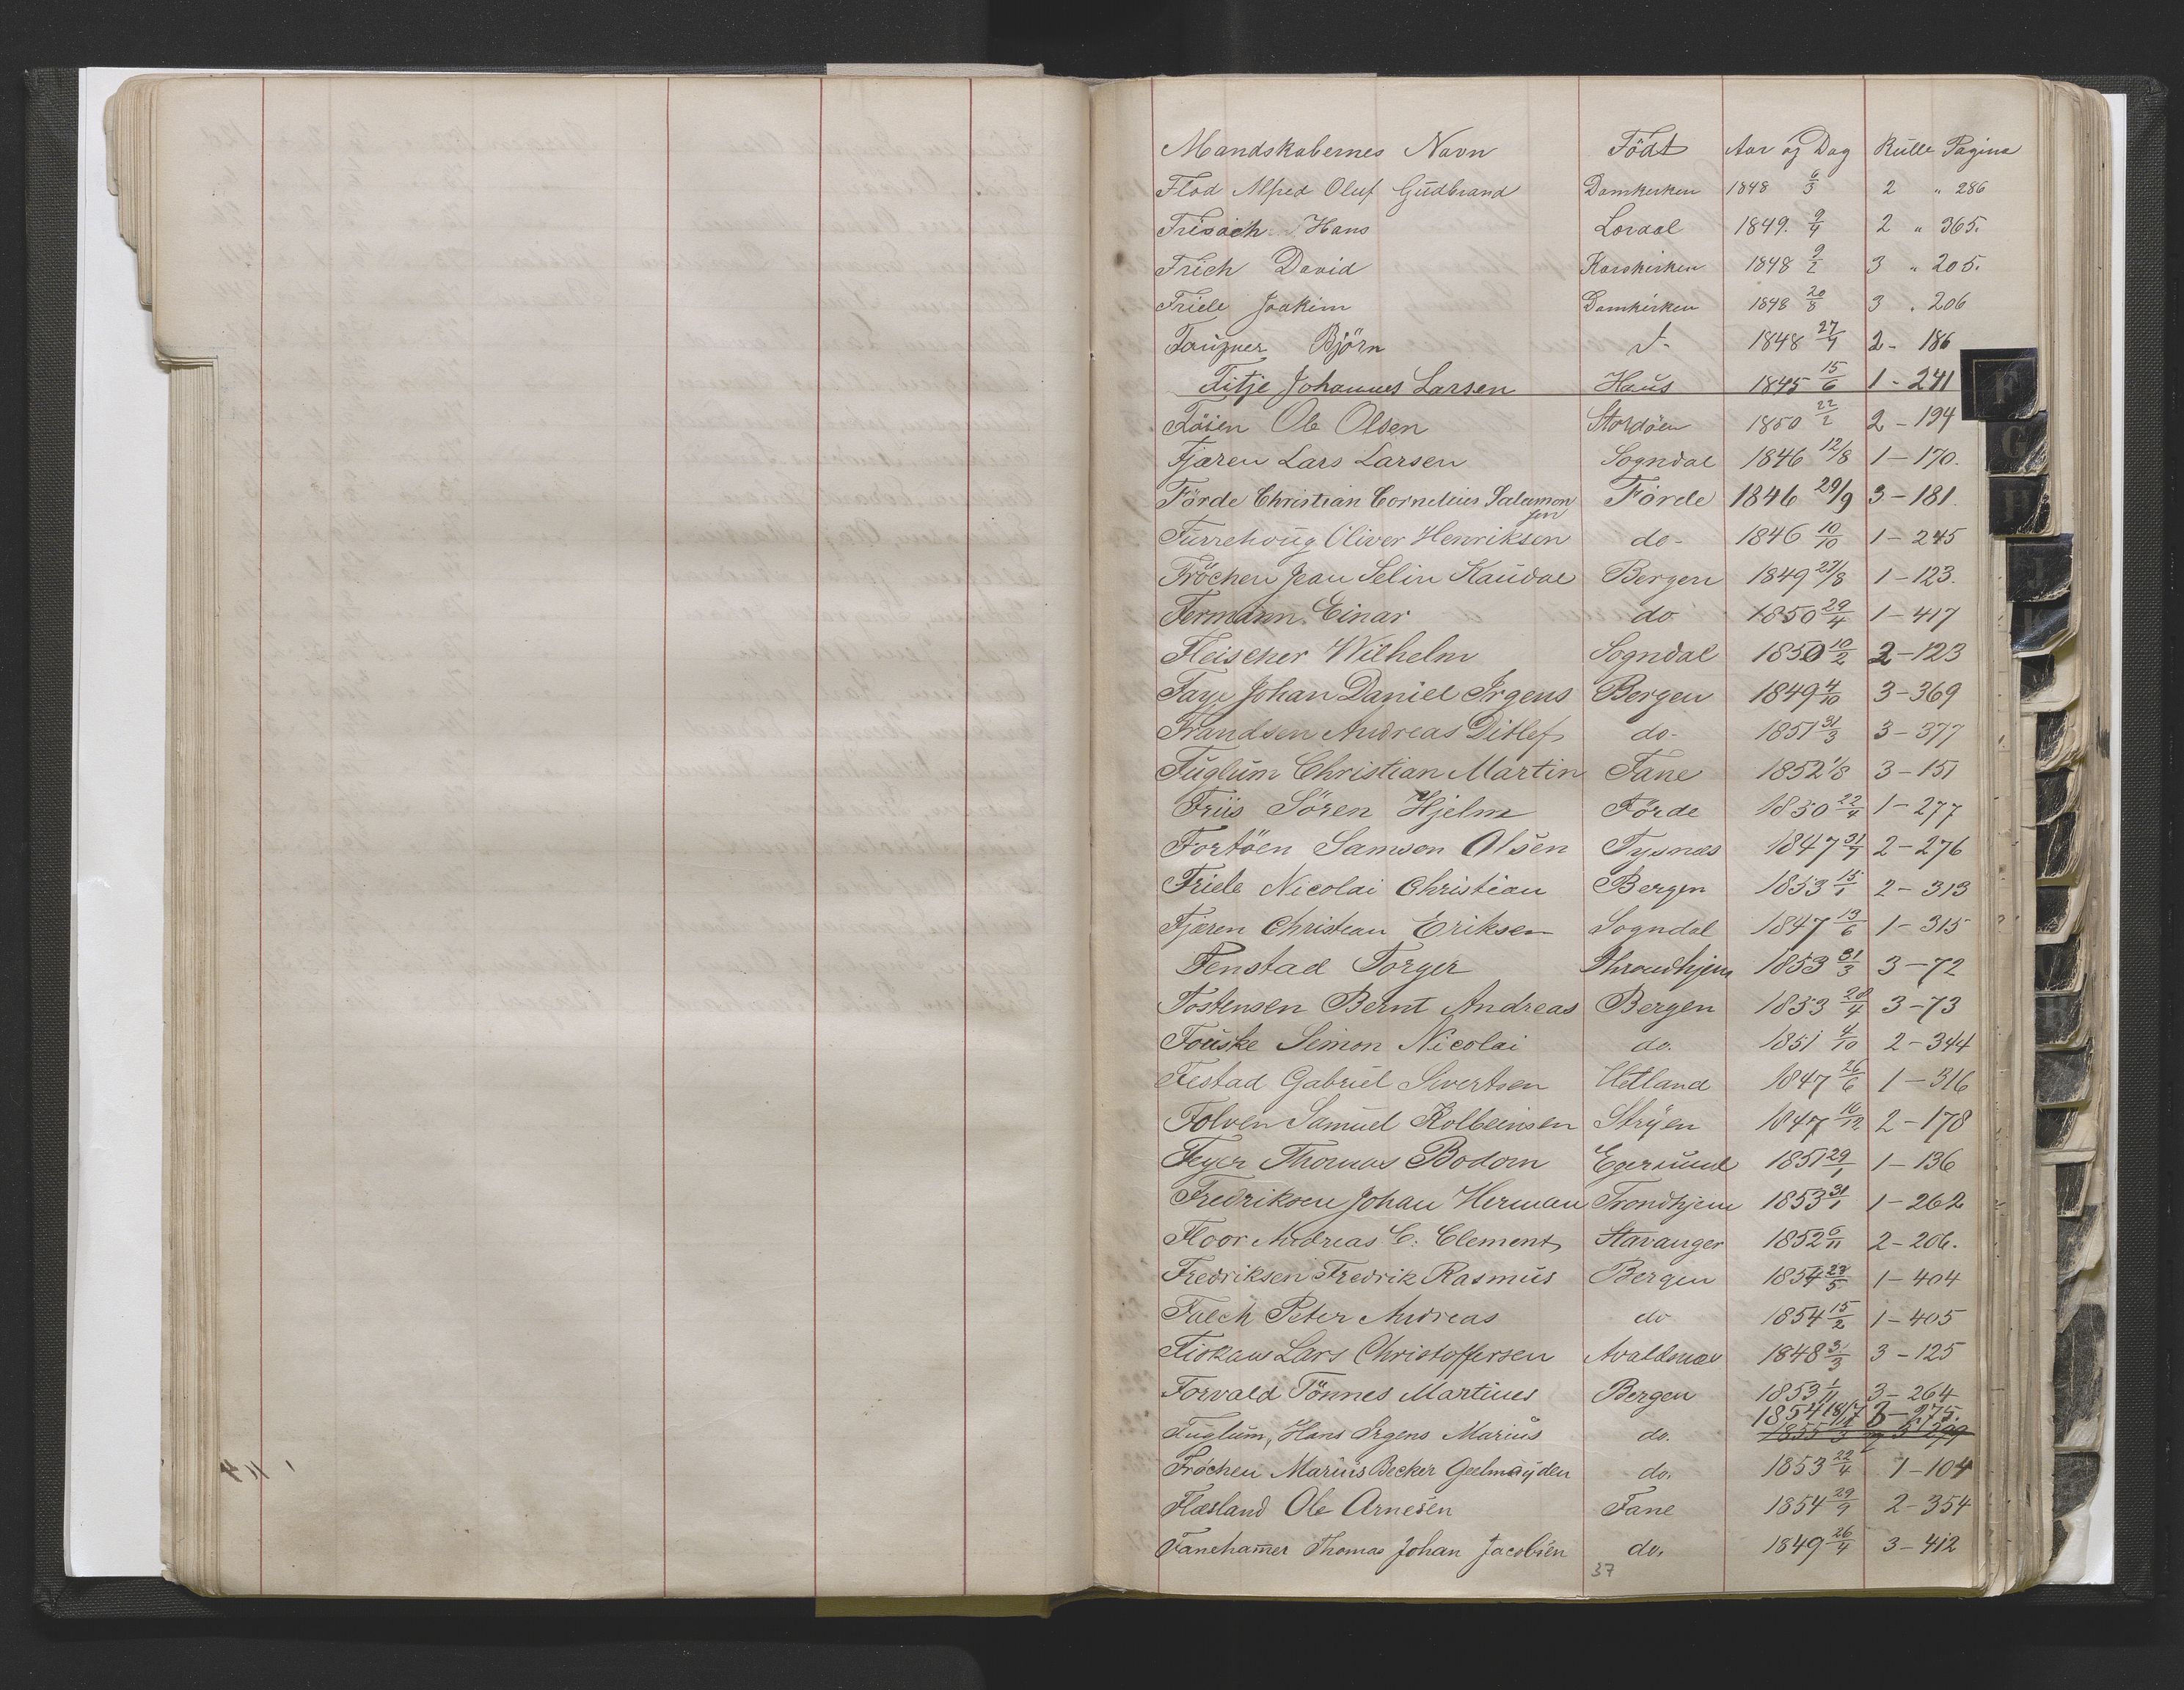 Mandskabernes Navn Födt Aar og Dag Rulle Pagina
Flod Alfred Oluf Gudbrand Domkirken 1848 6/3 2 " 286
Hans 1849. 9/4 2 " 365.
Frich David Korskirken 1848 9/2 3 " 205.
Friele Joakim Domkirken 1848 20/8 3 . 206
Björn 1848 2 - 186
Fitje Johannes Larsen Haus 1845 15/6 1 - 241
Ole Olsen Stordöen 1850 22/2 2 - 194
Fjæren Lars Larsen Sogndal 1846 12/8 1 - 170.
Förde Christian Cornelius Salamon Förde 1846 29/9 3 - 181.
sen
Furrehoug Oliver Henriksen do - 1846 10/10 1 - 245
Fröchen Jean Selin Bergen 1849 1 - 123.
Fermann Einar do 1850 29/4 1 - 417
Fleischer Wilhelm Sogndal 1850 10/2 2 - 123
Faye Johan Daniel Irgens Bergen 1849 4/10 3 - 369
Frandsen Andreas Ditlef do - 1851 31/3 3 - 377
Fuglum Christian Martin Fane 1852 1/8 3 - 151
Friis Sören Hjelm Förde 1850 22/4 1 - 277
Fortöen Samson Olsen Tysnæs 1847 2 - 276
Friele Nicolai Christian Bergen 1853 15/1 2 - 313
Fjæren Christian Eriksen Sogndal 1847 13/6 1 - 315
Fenstad Torger Throndhjem 1853 31/3 3 - 72
Fostensen Bernt Andreas Bergen 1853 28/4 3 - 73
Fouske Simon Nicolai do. 1851 4/10 2 - 344
Festad Gabriel Sivertsen Hetland 1847 26/6 1 - 316
Folven Samuel Kolbeinsen Stryen 1847 16/12 2 - 178
Feyer Thomas Bodom Egersund 1851 29/1 1 - 136
Fredriksen Johan Herman Trondhjem 1853 31/1 1 - 262
Floor Andreas C. Clement Stavanger 1852 6/11 2 - 206.
Fredriksen Fredrik Rasmus Bergen 1854 1 - 404
Falch Peter Andreas do 1854 15/2 1 - 405
Lars Christoffersen Avaldsnæs 1848 3 - 125
Forvald Tönnes Martines Bergen 1853 1/11 3 - 264
1854 18/7 3 - 275.
Fuglum, Hans Irgens Marius do.
Fröchen Marius Becker Geelmuyden do. 1853 22/4 1 - 104
Flæsland Ole Arnesen Fane 1854 29/9 2 - 354
Fanehamer Thomas Johan Jacobsen do. 1849 26/4 3 - 412
37
F
G
H
J
K